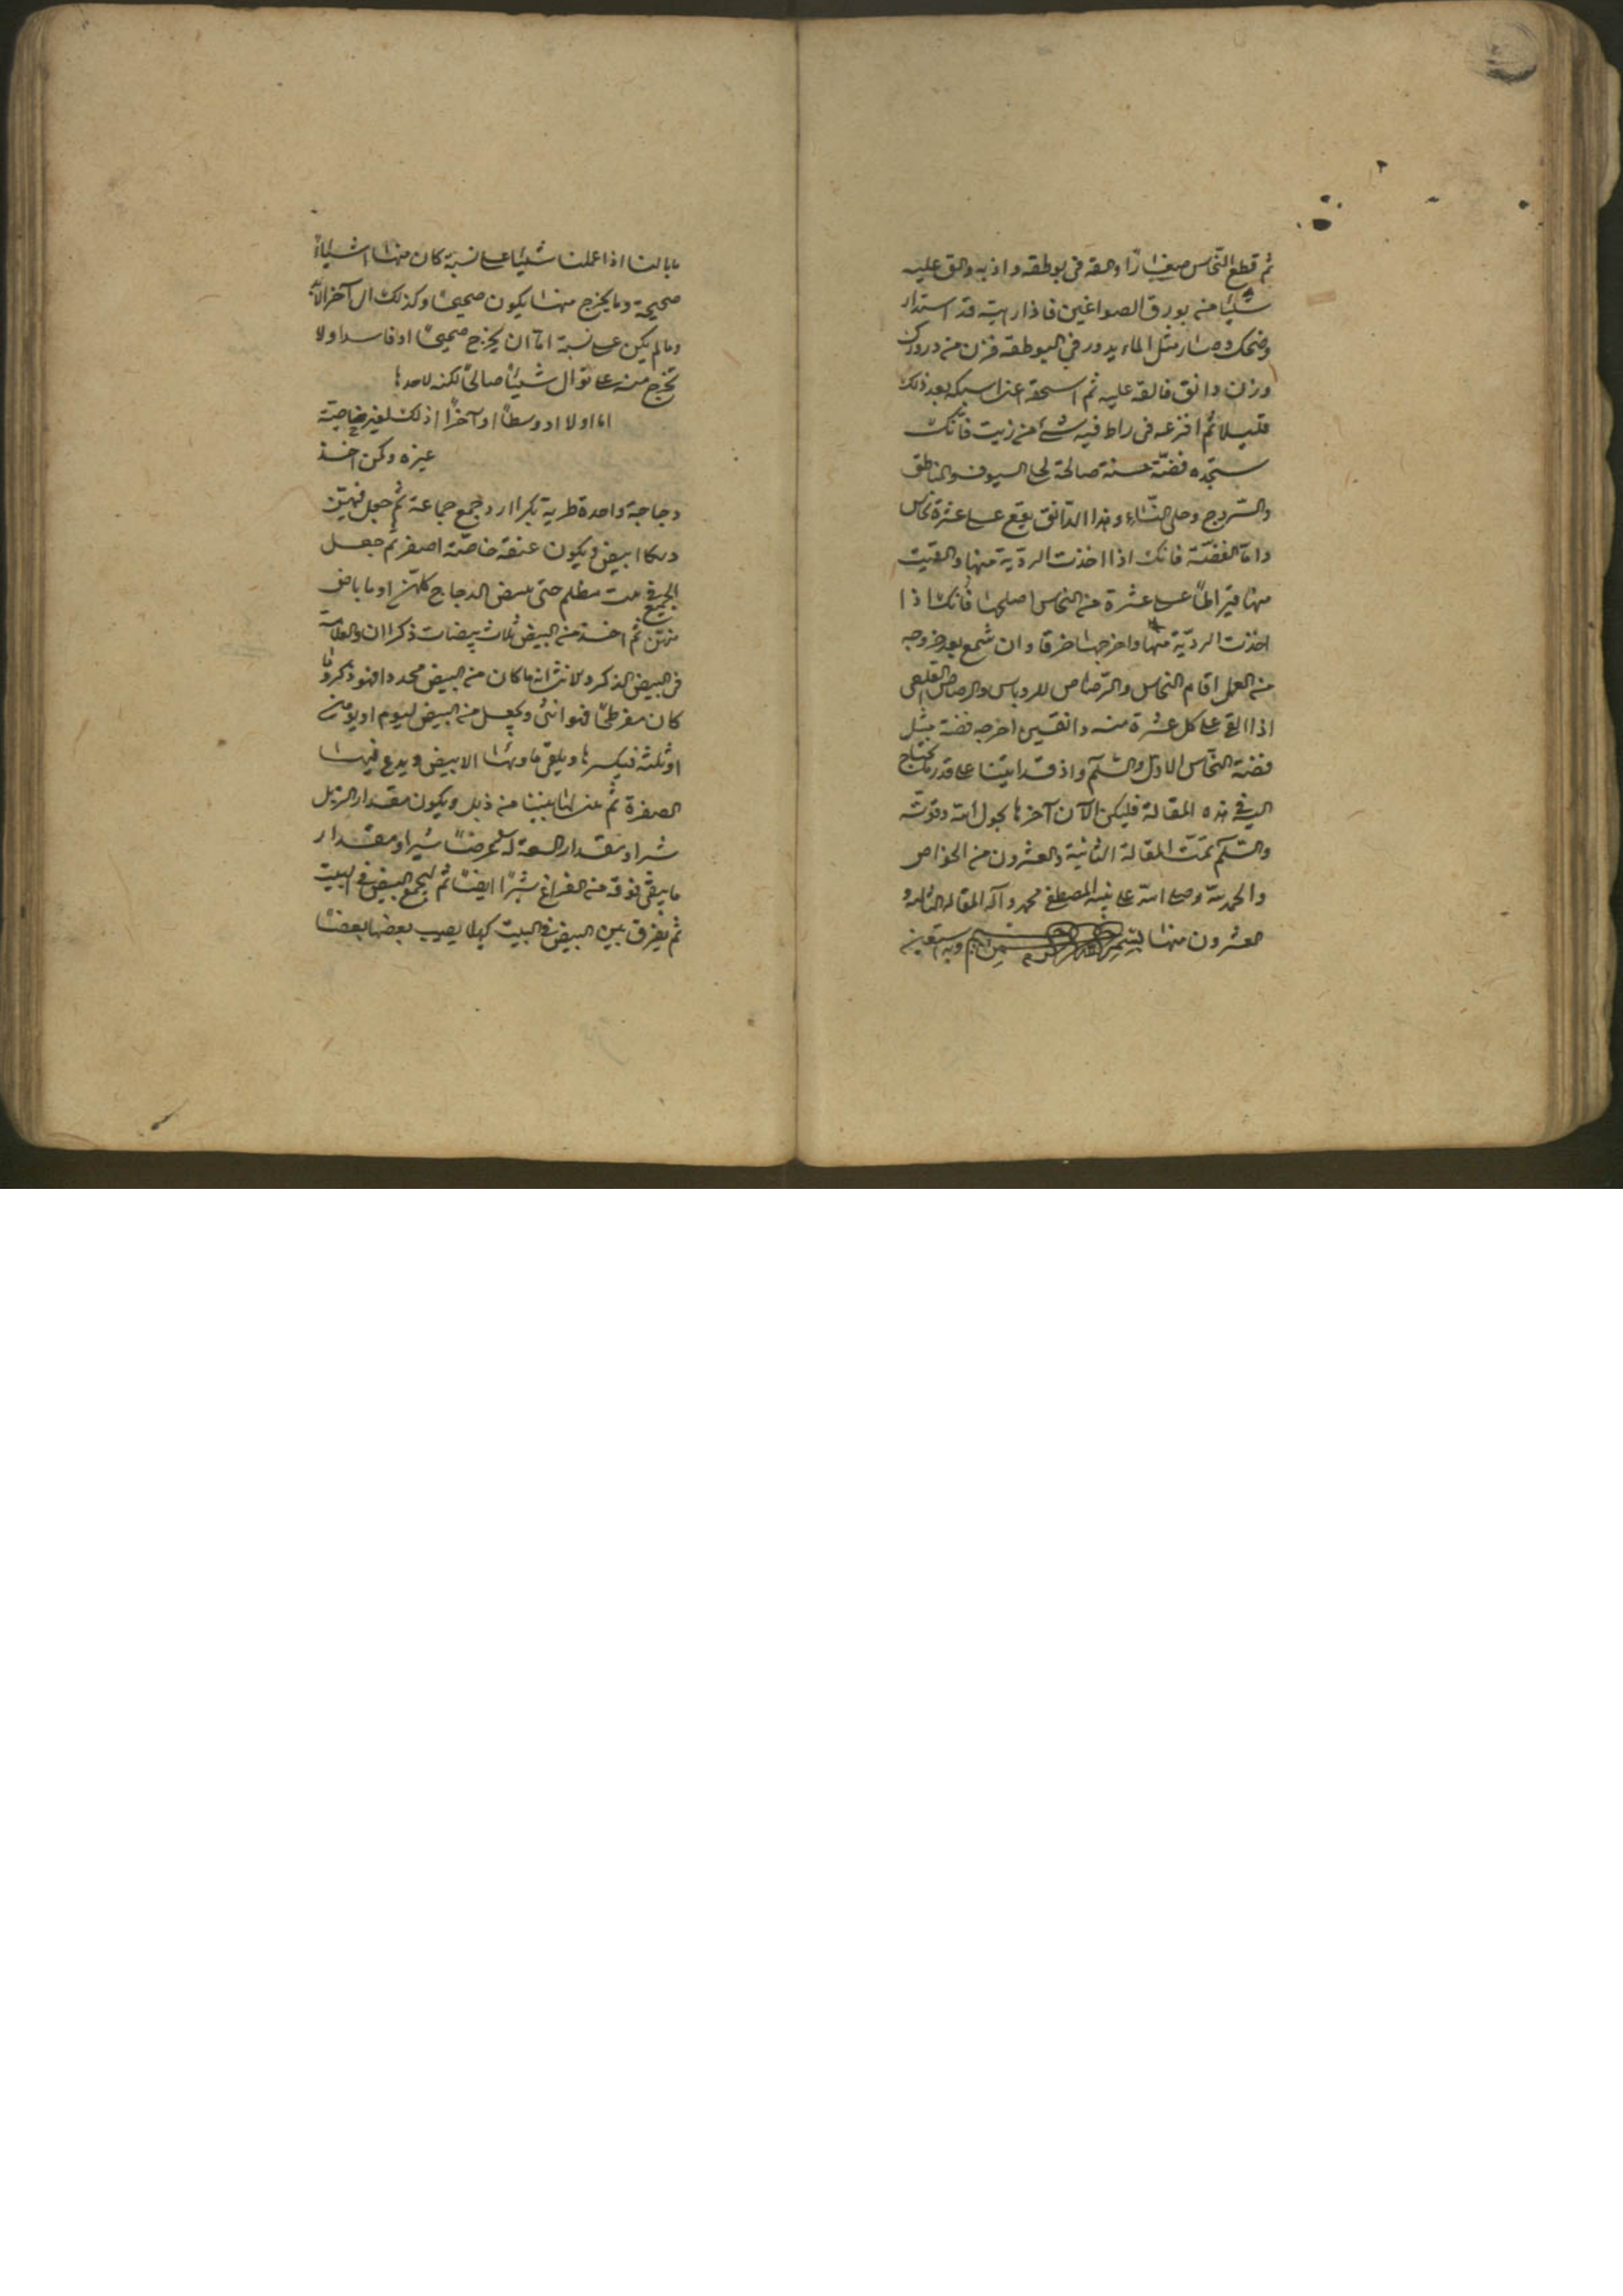 ثم قطع النحاس صغارًا والقه في بوطقه واذبه والق عليه
شيئا من بورق الصواغين فاذا رايته قد استدار
وضحك وصار مثل الماء يدور في البوطقه فزن من دروك
وزن دانق فالقه عليه ثم اسبكه بعد ذلك
قليلا ثم افرغه في راط فيه شئ من زيت فانك
ستجده فضّة حسنة صالحة لحلى السيوف والمناطق
والسروج وحلى النساء وهذا الدانق يقع على عشرة نحاس
وامّا الفضّة فانك اذا اخذت الرديّة منها والقيت
منها قيراطًا على عشرة من النحاس اصلحها فانك اذا
اخذت الرديّة منها واخرجها وان شمع بعد خروجه
من العمل اقام النحاس والرصاص والرصاص القلعي
اذا القى على كل عشرة منه دانقين اخرجه فضة مثل
فضة النحاس الاول والسلم واذ قد اتينا على قدر ما يحتاج
اليه في هذه المقالة فليكن الآن آخرها بحول الله وقوته
والسلم تمّت المقالة الثانية والعشرون من الخواص
والحمد لله وصلى الله على نبيه المصطفى محمد وآله المقاله الثالثه و
العشرون منها بسم الله الرحمن الرحيم وبه نستعين
ما بالنا اذا عملنا شيئا على نسبة كان منها اشياءً
صحيحة وما يخرج منها يكون صحيحًا وكذلك الى آخر الابد
وما لم يكن على نسبة امّا ان يخرج صحيحًا او فاسدا ولا
يخرج منه على توال شيئًا صالحًا لكنه
اما اولا او وسطًا او آخرًا اذ لك لغير خاصيّة
غيره وكن اخذ
دجاجة واحدة طرية بكرا او جمع جماعة ثم جعل فيهنّ
ديكا ابيض ويكون عنقه خاصّة اصفر ثم جعل
الجميع في بيت مظلم حتى تبيض الدجاج كلهنّ او ما باض
منهنّ ثم اخذ من البيض ثلاث بيضات ذكرا ان والعلامة
في البيض الذكر والانثى انه ما كان من البيض محددا فهو ذكر وما
كان مفرطحًا فهو انثى ويجعل من البيض ليوم او يومين
او ثلثة فيكسرها ويلقى ماوها الابيض ويدع فيها
الصفرة ثم عمل لها بيتا من زبل ويكون مقدار الزبل
شبرا ومقدار السعة له عرضًا شبرا ومقدار
ما يبقى فوقه من الفراغ شبرًا ايضًا ثم ليجمع البيض في البيت
ثم يفرق بين البيض في البيت كيلا يصيب بعضها بعضًا